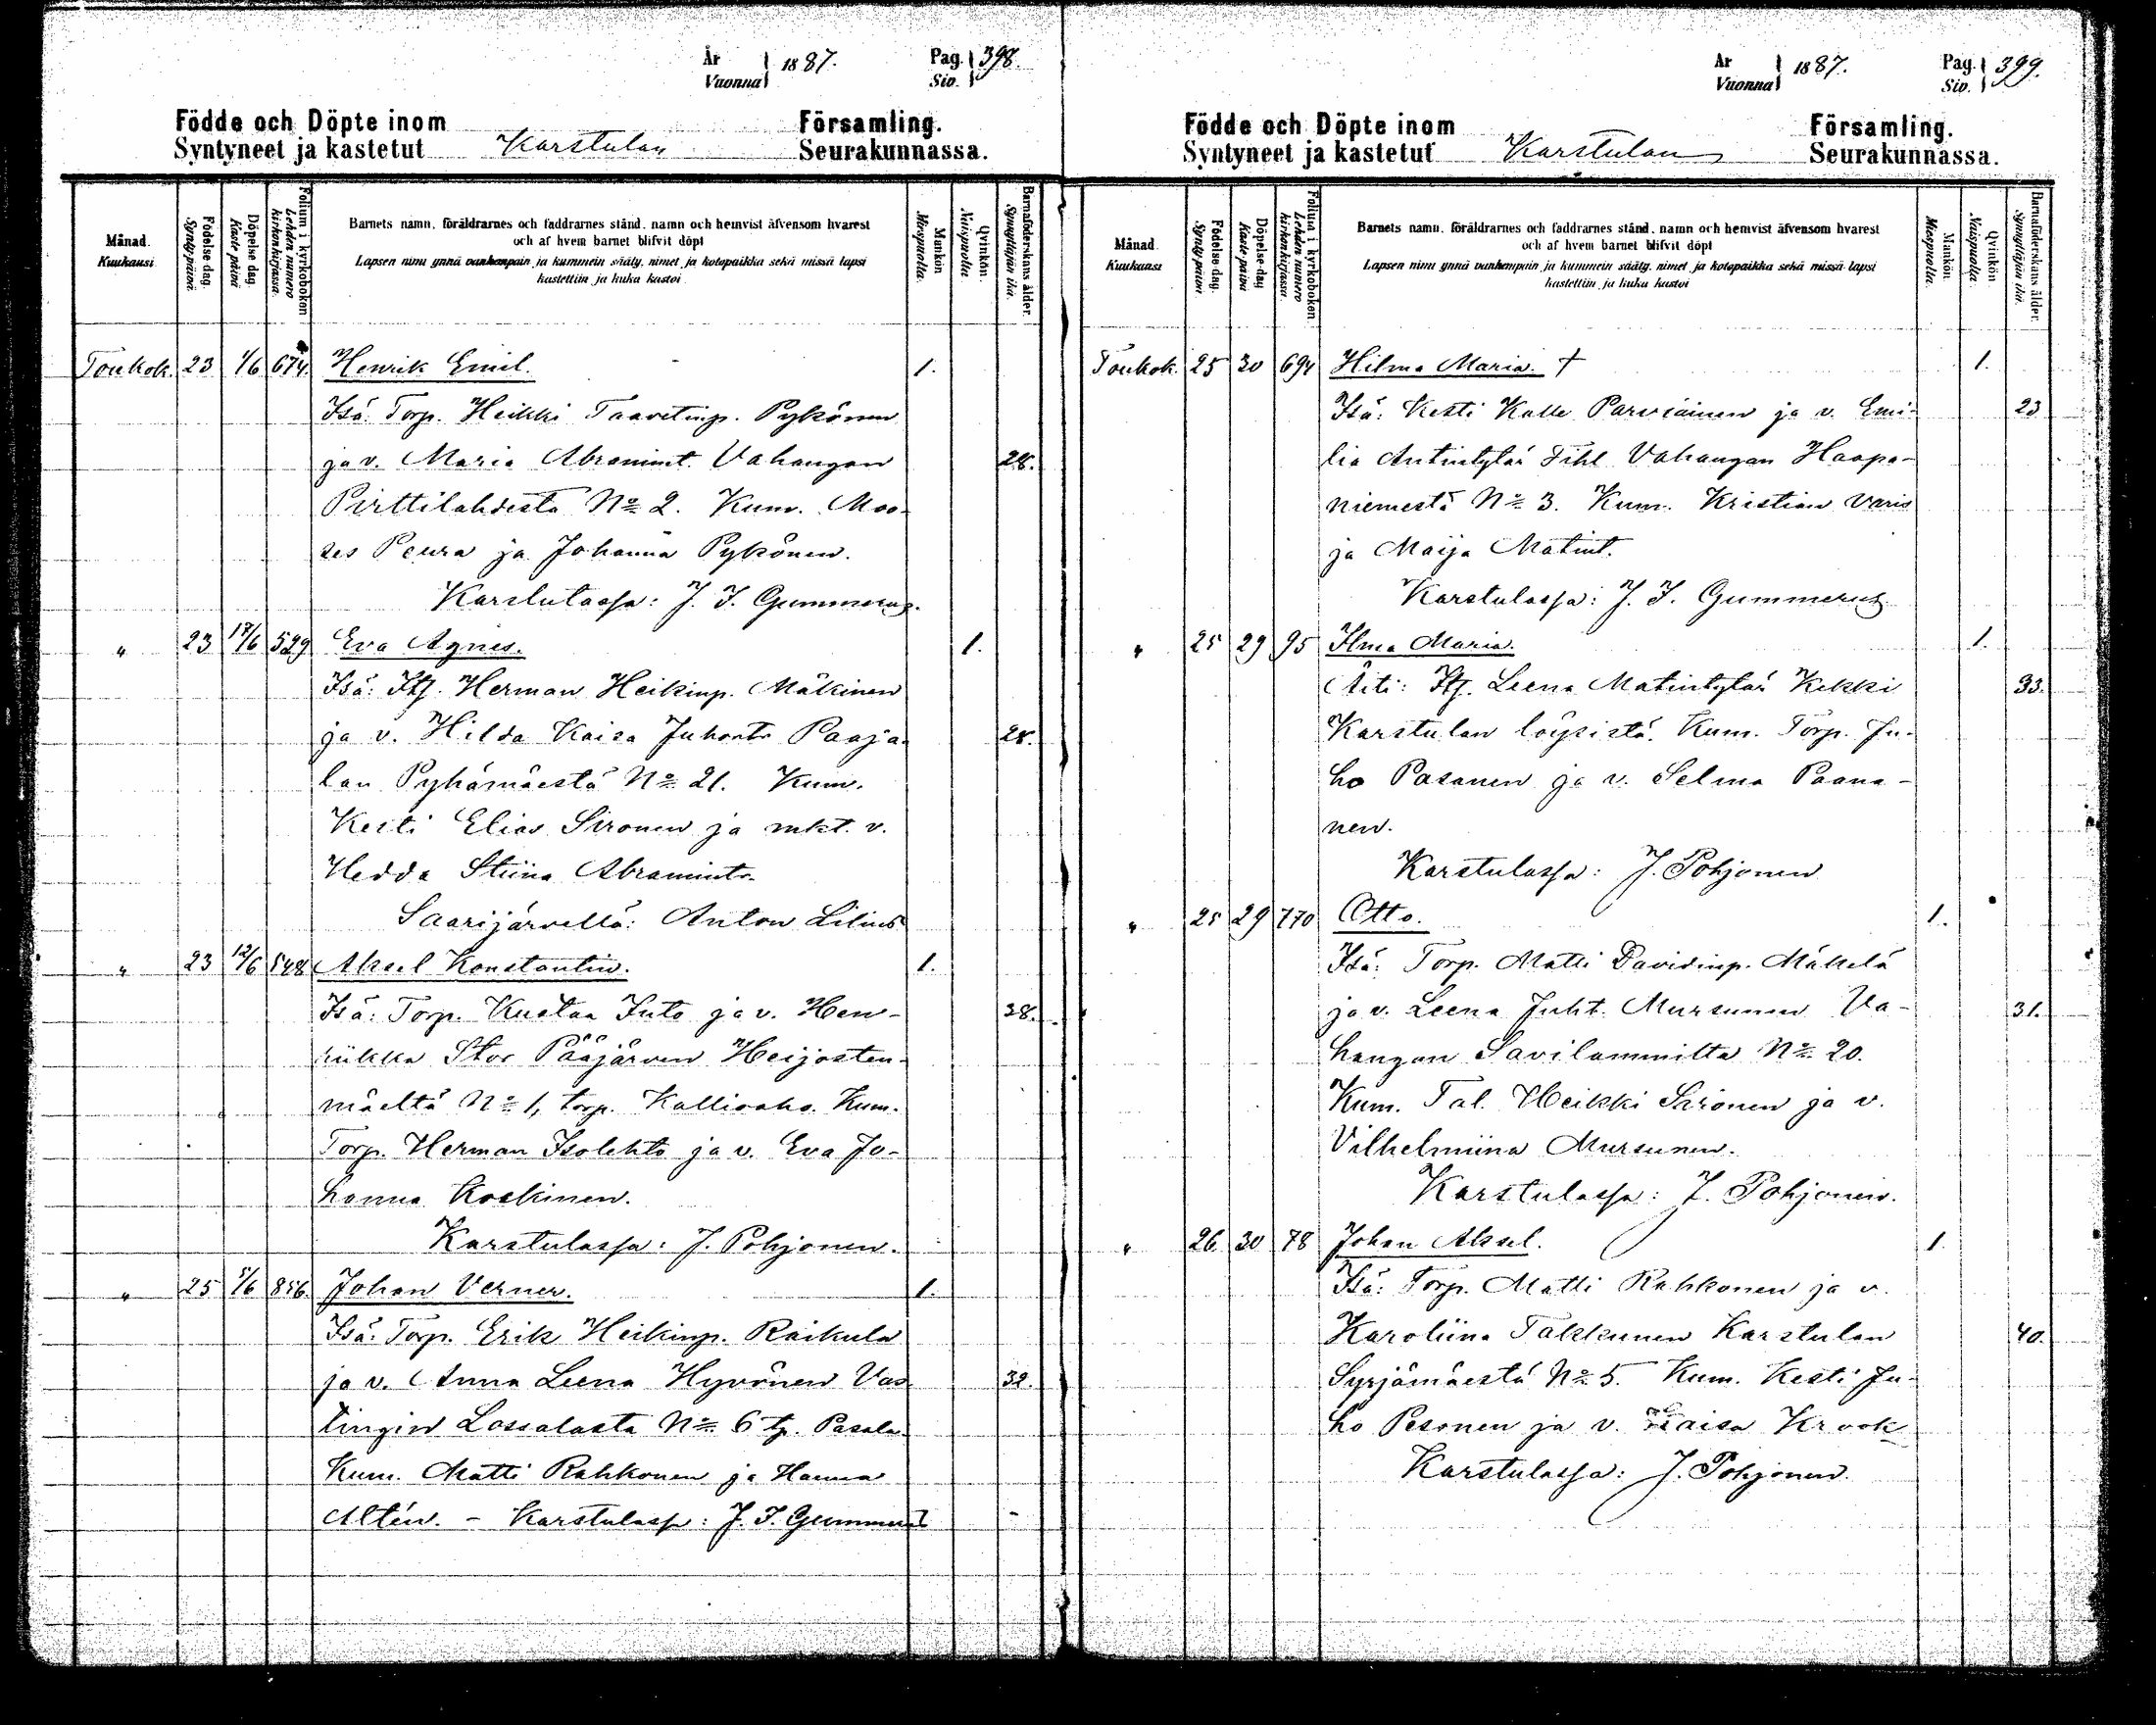 År Vuonna 1887. Pag. Siv. 398.
Födde och Döpte inom Församling.
Syntyneet ja kastetut Karstulan Seurakunnassa.
Månad. Kuukausi.
Födelse dag. Synty päivä
Döpelse dag. Kaste päivä
Folium i kyrkoboken Lehden numero kirkonkirjassa.
Barnets namn, föräldrarnes och faddrarnes stånd, namn och hemvist äfvensom hvarest
och af hvem barnet blifvit döpt
Lapsen nimi ynnä vanhempain ja kummein sääty, nimet ja kotopaikka sekä missä lapsi
kastettiin ja kuka kastoi
Mankön Miespuolta.
Qvinkön. Naispuolta.
Barnaföderskans ålder. Synnyttäjän ikä.
Toukok. 23 1/6 674. Henrik Emil. 1.
Isä: Torp. Heikki Taavetinp. Pykönen
ja v. Maria Abramint. Vahangan 28.
Pirttilahdesta No 2. Kum. Moo-
ses Peura ja Johanna Pykönen.
Karstulassa: J. I. Gummerus.
" 23 17/6 529 Eva Agnes. 1.
Isä: Itj. Herman Heikinp. Mäkinen
ja v. Hilda Kaisa Juhontr Paaja- 28.
lan Pyhämäestä No 21. Kum.
Kesti Elias Sironen ja mkt. v.
Hedda Stiina Abramintr.
Saarijärvellä: Anton Lilius
" 23 12/6 548 Aksel Konstantin. 1.
Isä: Torp. Kustaa Juto ja v. Hen- 38.
riikka Stor Pääjärven Heijosten-
mäeltä No 1, torp. Kallioaho. Kum.
Torp. Herman Isolehto ja v. Eva Jo-
hanna Koskinen.
Karstulassa: J. Pohjonen.
" 25 5/6 856. Johan Verner. 1.
Isä: Torp. Erik Heikinp. Raikula
ja v. Anna Leena Hyvönen Vas- 32.
tingin Lossalasta No 6 tp. Pasala.
Kum. Matti Rahkonen ja Hanna
Altén. - Karstulass: J. I. Gummerus
År Vuonna 1887. Pag. Siv. 399.
Födde och Döpte inom Församling.
Syntyneet ja kastetut Karstulan Seurakunnassa.
Månad. Kuukausi
Födelse dag. Synty päivä
Döpelse dag Kaste päivä
Folium i kyrkoboken Lehden numero kirkonkirjassa.
Barnets namn, föräldrarnes och faddrarnes stånd, namn och hemvist äfvensom hvarest
och af hvem barnet blifvit döpt
Lapsen nimi ynnä vanhempain ja kummein sääty, nimet ja kotopaikka sekä missä lapsi
kastettiin ja kuka kastoi
Mankön. Miespuolta.
Qvinkön Naispuolta.
Barnaföderskans ålder. Synnyttäjän ikä.
Toukok. 25 30 694 Hilma Maria. † 1.
Isä: Kesti Kalle Parviainen ja v. Emi- 23
lia Antintytär Fihl Vahangan Haapa-
niemestä No 3. Kum. Kristian Varis
ja Maija Matint.
Karstulassa: J. I. Gummerus
" 25 29 95 Ilma Maria. 1.
Äiti: Itj. Leena Matintytär Kekki 33.
Karstulan löysistä. Kum. Torp. Ju-
ho Pasanen ja v. Selma Paana-
nen.
Karstulassa: J. Pohjonen
" 25 29 770 Otto. 1.
Isä: Torp. Matti Davidinp. Mäkelä
ja v. Leena Juht. Mursunen Va- 31.
hangan Savilammilta No 20.
Kum. Tal. Heikki Sironen ja v.
Vilhelmiina Mursunen.
Karstulassa: J. Pohjonen.
" 26. 30 78 Johan Aksel. 1.
Isä: Torp. Matti Rahkonen ja v.
Karoliina Takkunen Karstulan 40.
Syrjämäestä No 5. Kum. Kesti Ju-
ho Pesonen ja v. Kaisa Krook
Karstulassa: J. Pohjonen.